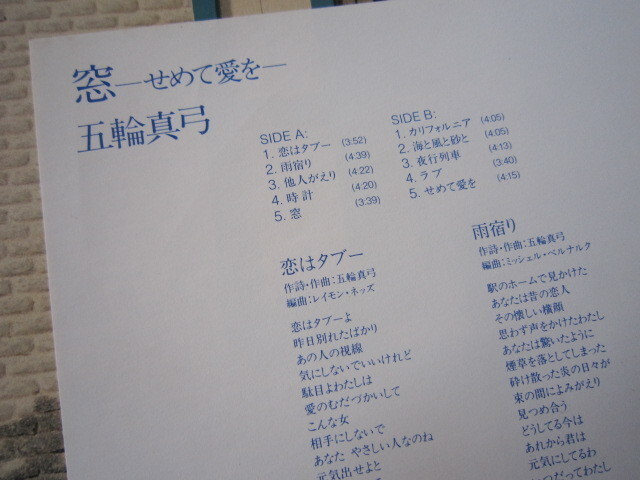 窓―せめて愛を―
五輪真弓
SIDE A:
1. 恋はタブー (3:52)
2. 雨宿り (4:39)
3. 他人がえり (4:22)
4. 時計 (4:20)
5. 窓 (3:39)
SIDE B:
1. カリフォルニア (4:05)
2. 海と風と砂と (4:05)
3. 夜行列車 (4:13)
4. ラブ (3:40)
5. せめて愛を (4:15)
恋はタブー
作詩・作曲:五輪真弓
編曲:レイモン・ネッズ
恋はタブーよ
昨日別れたばかり
あの人の視線
気にしないでいいけれど
駄目よわたしは
愛のむだづかいして
こんな女
相手にしないで
あなた やさしい人なのね
元気出せよと
雨宿り
作詩・作曲:五輪真弓
編曲:ミッシェル・ベルナルク
駅のホームで見かけた
あなたは昔の恋人
その懐しい横顔
思わず声をかけたわたし
あなたは驚いたように
煙草を落としてしまった
砕け散った炎の日々が
束の間によみがえり
見つめ合う
どうしてる今は
あれから君は
元気にしてるわ
いつだってわたし